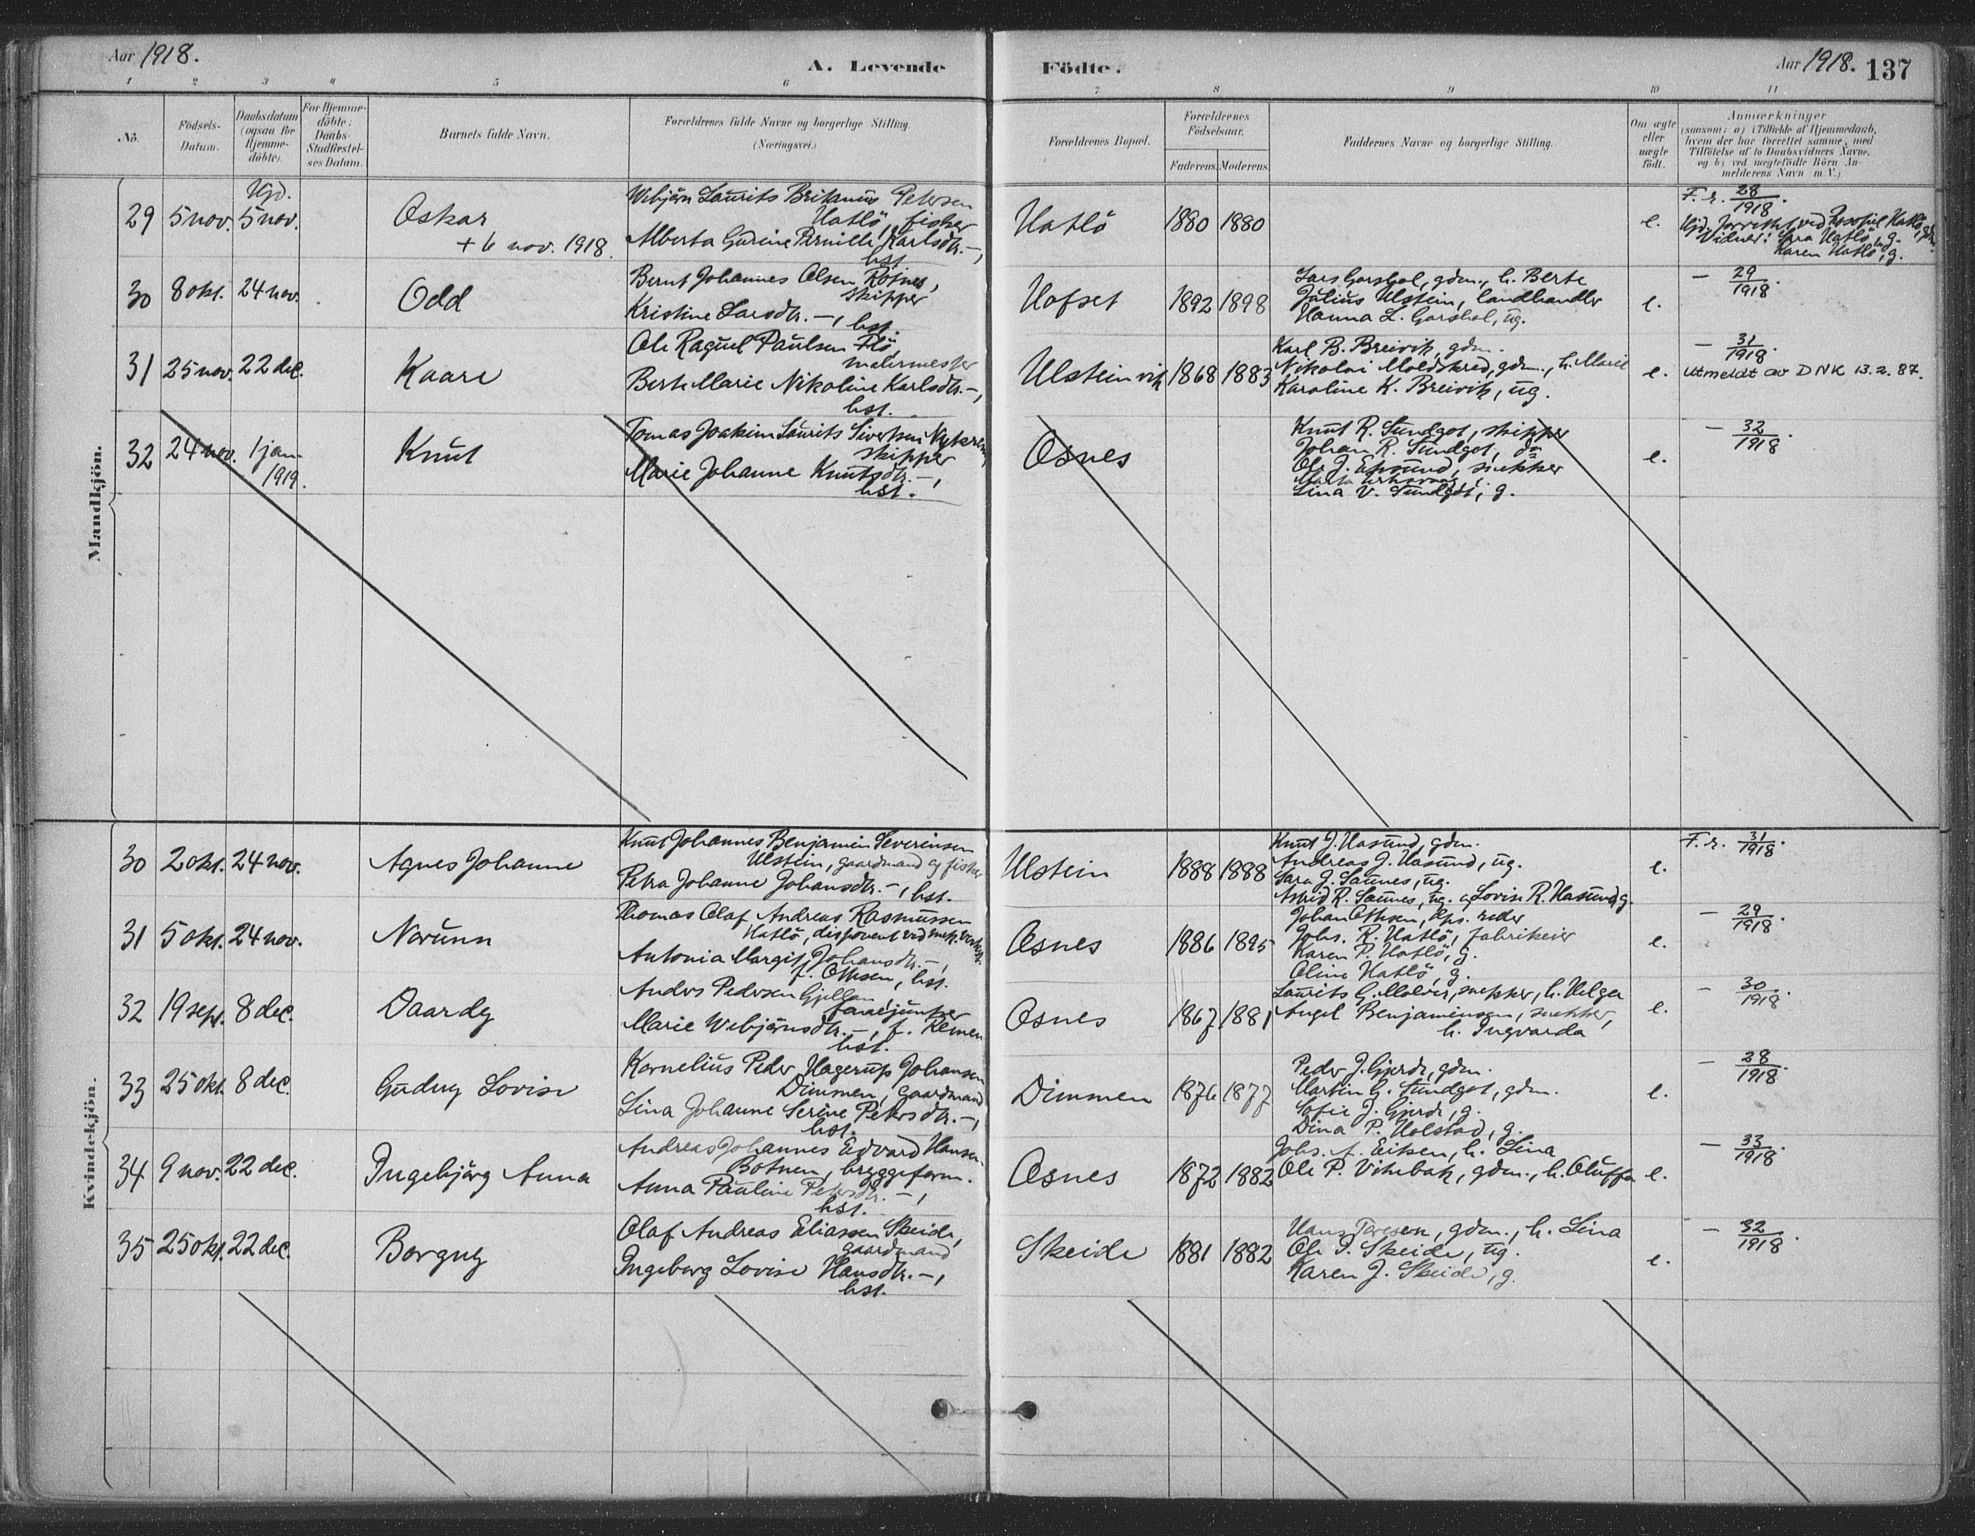 Aar 1918.
A. Levende Födte.
Aar 1918. 137
1 2 3 4 5 6 7 8 9 10 11
No. Födsels-Datum. Daabsdatum (ogsaa for Hjemmedöbte). For Hjemmedöbte: Daabs-Stadfæstelses Datum. Barnets fulde Navn. Forældrenes fulde Navne og borgerlige Stilling. (Næringsvei.) Forældrenes Bopæl. Forældrenes Födselsaar. Faderens. Moderens. Faddernes Navne og borgerlige Stilling. Om ægte eller uægte födt. Anmærkninger (saasom: a) i Tilfælde af Hjemmedaab, hvem der har forrettet samme, med Tilföielse af to Daabsvidners Navne, og b) ved uægtefödte Börn Anmelderens Navn m. V.)
Mandkjön.
29 5 nov. Hjd. 5 nov. Oskar + 6 nov. 1918.
Webjörn Laurits Britanus Petersen
Hatlö, fisker
Alberta Gurine Pernille Karlsdtr. —,
hst.
Hatlö 1880 1880 e.
F. r. 28/1918.
Hjd. forrettet ved Hatlö, gdm.
Vidner: Sara Hatlö, g.
Karen Hatlö, g.
30 8 okt. 24 nov. Odd
Bernt Johannes Olsen Rötnes,
skipper
Kristine Larsdtr. —, hst.
Hofset 1892 1898
Lars Garshol, gdm., h. Berte
Julius Ulstein, landhandler
Hanna L. Garshol, ug.
e. — 29/1918.
31 25 nov. 22 dec. Kaare
Ole Raquel Paulsen Flö
malermester
Berte Marie Nikoline Karlsdtr. —,
hst.
Ulsteinvik 1868 1883
Karl B. Breivik, gdm.
Nikolai Moldskred, gdm., h. Marie
Karoline K. Breivik, ug.
e. — 31/1918.
Utmeldt av DNK 13.2.87.
32 24 nov. 1 jan. 1919. Knut
Tomas Joakim Laurits Sivertsen
skipper
Marie Johanne Knutsdtr. —,
hst.
Osnes
Knut R. Sundgot, skipper
Johan R. Sundgot, do
Ole J. Eiksund, snekker
Lina V. Sundgot, g.
e. — 32/1918.
Kvindekjön.
30 2 okt. 24 nov. Agnes Johanne
Knut Johannes Benjamin Severinsen
Ulstein, gaardmand og fisker
Petra Johanne Johansdtr. —, hst.
Ulstein 1888 1888
Knut J. Hasund, gdm.
Andreas J. Hasund, ug.
Sara J. Saunes, ug.
Astrid R. Saunes, ug. og Lovise R. Hasund, g.
e. F. r. 31/1918.
31 5 okt. 24 nov. Norunn
Thomas Olaf Andreas Rasmussen
Hatlö, disponent ved mek. verkst.
Antonia Margit Johansdtr. —,
f. Othsen, hst.
Osnes 1886 1895
Johan Othsen, dps. reder
Johs. R. Hatlö, fabrikeier
Karen P. Hatlö, g.
Oline Hatlö, g.
e. — 29/1918.
32 19 sept. 8 dec. Daardy
Anders Pedersen Gjellan,
Marie Webjörnsdtr. —, f. Remen
hst.
Osnes 1867 1881
Laurits G. Molvær, snekker, h. Helga
Angel Benjaminsen, snekker,
h. Ingvarda
e. — 30/1918.
33 25 okt. 8 dec. Gudny Lovise
Kornelius Peder Hagerup Johansen
Dimmen, gaardmand
Lina Johanne Serine Petersdtr. —,
hst.
Dimmen 1876 1877
Peder J. Gjerde, gdm.
Martin G. Sundgot, gdm.
Sofie J. Gjerde, g.
Dina P. Holstad, g.
e. — 28/1918.
34 9 nov. 22 dec. Ingebjörg Anna
Andreas Johannes Edvard Hansen
Botnen, bryggeform.
Anna Pauline Petersdtr. —,
hst.
Osnes 1872 1882
Johs. A. Eiksen, h. Lina
Ole P. Vikebak, gdm., h. Oluffa
e. — 33/1918.
35 25 okt. 22 dec. Borgny
Olaf Andreas Eliassen Skeide,
gaardmand
Ingeborg Lovise Hansdtr. —,
hst.
Skeide 1881 1882
Hans, gdm., h. Lina
Ole J. Skeide, ug.
Karen J. Skeide, g.
e. — 32/1918.